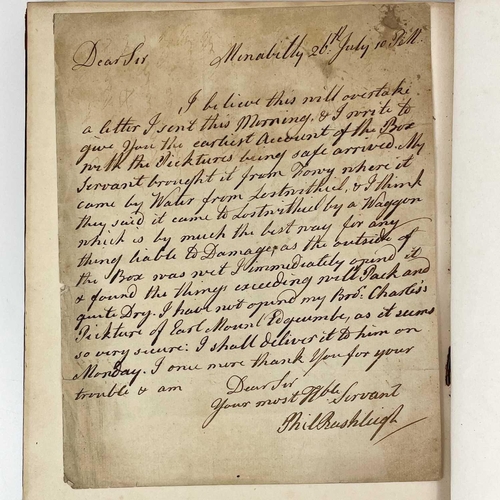 Dear Sir Menabilly 26th July 10 P.M.
I believe this will overtake
a letter I sent this Morning, & I write to
give You the earliest Account of the Box
with the Picktures being safe arrived. My
Servant brought it from Fowy where it
came by Water from Lostwithiel, & I think
they said it came to Lostwithiel by a Waggon
which is by much the best way for any
thing liable to Damage, as the outside of
the Box was wet I immediately opend it
& found the things exceeding well Pack and
quite Dry. I have not opend my Bror. Charles's
Pickture of Earl Mount Edgcumbe, as it seems
so very secure: I shall deliver it to him on
Monday. I once more thank You for your
trouble & am Dear Sir
Your most Hble Servant
Phil Rashleigh